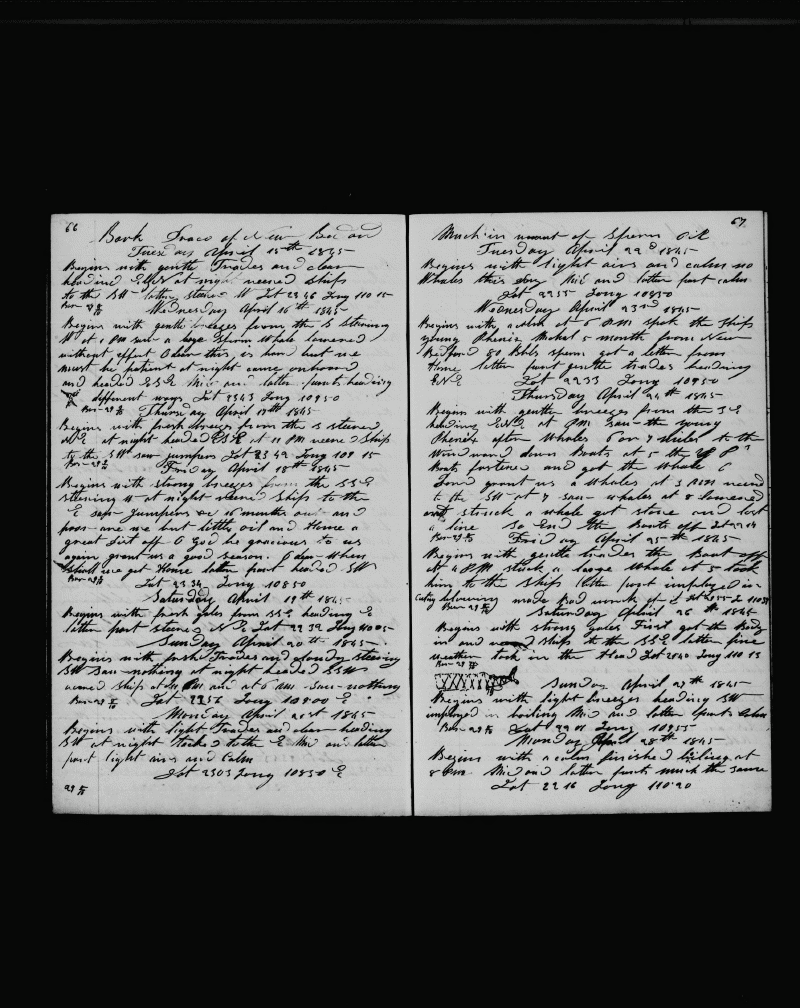 66
Bark Draco of New Bedford
Tuesday April 15th 1845
Begins with gentle Trades and clear
heading at night veered Ships
to the SW latter steered W Lat 2346 Long 110 15
Bar
Wednesday April 16th 1845
Begins with gentle breezes from the S steering
W at 1 PM saw a large Sperm Whale lowered
without effect O dear this is hard but we
must be patient at night came onboard
and headed ESE Mid and latter parts heading
different ways Lat 2343 Long 10950
Bar
Thursday April 17th 1845
Begins with fresh breezes from the S steered
at night headed at 11 PM veered Ships
to the SW saw jumpers Lat 23 42 Long 109 15
Bar
Friday April 18th 1845
Begins with strong breezes from the SSE
steering at night veered Ships to the
E saw jumpers 16 months out and
poor are we but little oil and Home a
great dist off O God be gracious to us
again grant us a good season. O dear When
Shall we get Home latter part headed SW
Bar
Lat 2334 Long 10850
Saturday April 19th 1845
Begins with fresh gales from SSE heading E
latter part steered Lat 2232 Long
Sunday April 20th 1845
Begins with fresh Trades and cloudy steering
SW Saw nothing at night headed
veered Ships at and at 6 AM saw nothing
Bar Lat Long 10900
Monday April 21st 1845
Begins with light Trades and clear heading
SW at night tacked to the E Mid and latter
part light airs and Calm
Lat 2303 Long 10850
67
Much in want of Sperm Oil
Tuesday April 22d 1845
Begins with light airs and calm no
Whales this day Mid and latter part calm
Lat 2255 Long 10850
Wednesday April 23rd 1845
Begins with calm at 6 PM spoke the Ship
young Phenix 5 month from New
Bedford 80 Bbls sperm got a letter from
Home latter part gentle trades heading
ENE Lat 2233 Long 10950
Thursday April 24th 1845
Begins with gentle breezes from the SE
heading at PM saw the young
Phenix after Whales 6 or 7 miles to the
Windward down Boats at 5 the Y P
Boats fastened and got the Whale O
Lord grant us a Whales at 3 AM veered
to the SW at 7 saw whales at 8 lowered
and struck a whale got stove and lost
a line So End the Boats off Lat 22 14
Bar
Friday April 25th 1845
Begins with gentle trades the Boat off
at 4 PM struck a large Whale at 5 took
him to the Ships latter part employed in
Cutting blowing made Bad work of it Lat 2255
Bar
Saturday April 26th 1845
Begins with strong gales First got the Body
in and veered Ships to the SSE latter fine
weather took in the Head Lat 2240 Long 110 15
Bar
Sunday April 27th 1845
Begins with light breezes heading SW
employed in boiling Mid and latter parts Calm
Bar Lat 22 Long 10955
Monday April 28th 1845
Begins with a calm finished boiling at
8 PM Mid and latter part much the same
Lat 22 16 Long 110 20